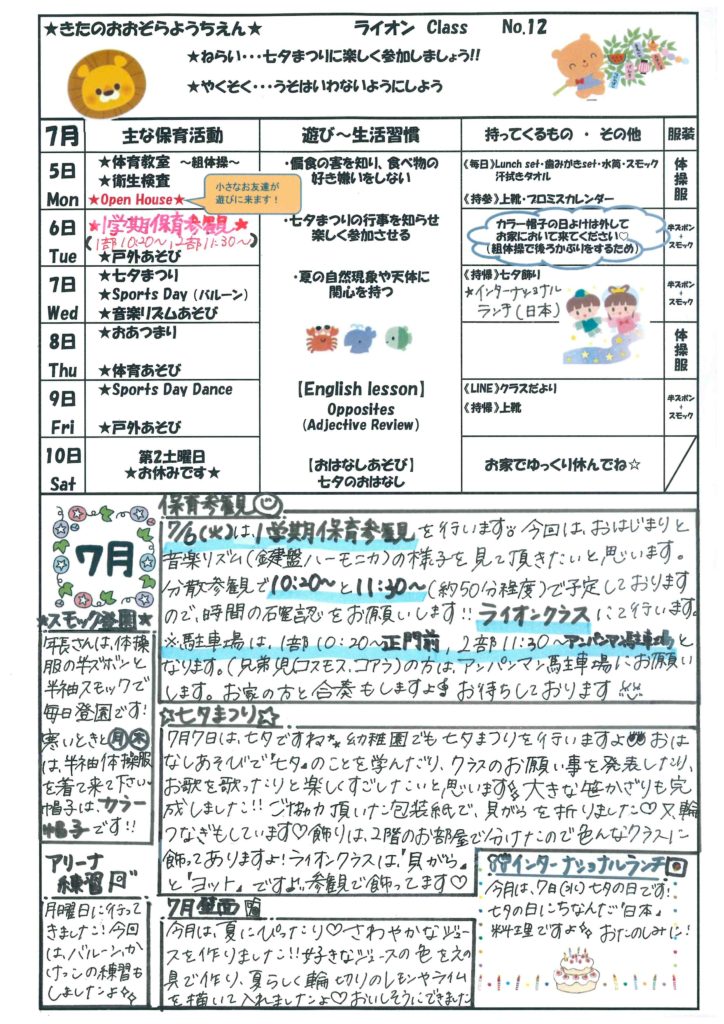 ★きたのおおぞらようちえん★　ライオン Class　No.12
★ねらい・・・七夕まつりに楽しく参加しましょう!!
★やくそく・・・うそはいわないようにしよう
7月　主な保育活動　遊び～生活習慣　持ってくるもの ・ その他　服装
5日
Mon
★体育教室 ～組体操～
★衛生検査
★Open House★
小さなお友達が
遊びに来ます！
・偏食の害を知り、食べ物の
好き嫌いをしない
《毎日》Lunch set・歯みがきset・水筒・スモック
汗拭きタオル
《持参》上靴・プロミスカレンダー
体操服
6日
Tue
★1学期保育参観★
(1部10:20～, 2部11:30～)
★戸外あそび
・七夕まつりの行事を知らせ
楽しく参加させる
カラー帽子の日よけは外して
お家において来てください♡
(組体操で後ろかぶりをするため)
半ズボン
+
スモック
7日
Wed
★七夕まつり
★Sports Day (バルーン)
★音楽リズムあそび
・夏の自然現象や天体に
関心を持つ
《持帰》七夕飾り
★インターナショナル
ランチ(日本)
半ズボン
+
スモック
8日
Thu
★おあつまり
★体育あそび
体操服
9日
Fri
★Sports Day Dance
★戸外あそび
【English lesson】
Opposites
(Adjective Review)
《LINE》クラスだより
《持帰》上靴
半ズボン
+
スモック
10日
Sat
第2土曜日
★お休みです★
【おはなしあそび】
七夕のおはなし
お家でゆっくり休んでね☆
7月
保育参観
7/6(火)は、1学期保育参観を行います。今回は、おはじまりと
音楽リズム(鍵盤ハーモニカ)の様子を見て頂きたいと思います。
分散参観で10:20～と11:30～(約50分程度)で予定しております
ので、時間の確認をお願いします!! ライオンクラスにて行います。
※駐車場は、1部10:20～正門前, 2部11:30～アンパンマン駐車場と
なります。(兄弟児(コスモス、コアラ)の方は、アンパンマン駐車場にお願い
します。お家の方と合奏もしますよ♪ お待ちしております
★スモック登園★
年長さんは、体操
服の半ズボンと
半袖スモックで
毎日登園です!
寒いときと月木
は、半袖体操服
を着て来て下さい
帽子はカラー
帽子です!!
☆七夕まつり☆
7月7日は、七夕ですね★ 幼稚園でも七夕まつりを行いますよ おは
なしあそびで『七夕』のことを学んだり、クラスのお願い事を発表したり、
お歌を歌ったりと楽しくすごしたいと思います。大きな笹かざりも完
成しました!! ご協力頂いた包装紙で、貝がらを折りました♡又、輪
つなぎもしています♡飾りは、2階のお部屋で分けたので色んなクラスに
飾ってありますよ! ライオンクラスは、『貝がら』
と『ヨット』ですよ。参観で飾ってます♡
アリーナ
練習
月曜日に行って
きました! 今回
は、バルーン、か
けっこの練習も
しましたよ
7月壁面
今月は、夏にぴったり♡さわやかなジュー
スを作りました!! 好きなジュースの色をえの
具で作り、夏らしく輪切りのレモンやライム
を描いて入れましたよ♡おいしそうにできました
インターナショナルランチ
今月は、7日(水)七夕の日です!
七夕の日にちなんだ『日本』
料理ですよ。おたのしみに!